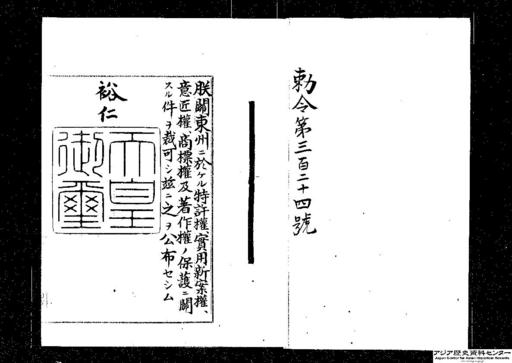 勅令第三百二十四號
朕關東州ニ於ケル特許權、實用新案權、
意匠權、商標權及著作權ノ保護ニ關
スル件ヲ裁可シ茲ニ之ヲ公布セシム
裕仁
天皇
御璽
アジア歴史資料センター
Japan Center for Asian Historical Records